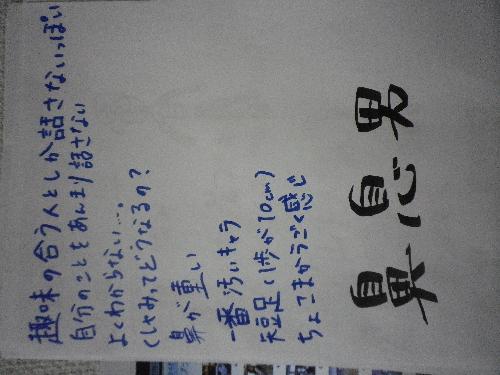 趣味の合う人としか話さないっぽい
自分のことをあんまり話さない
よくわからない…。
くしゃみってどうなるの？
鼻が重い
一番汚いキャラ
短足(1歩が10cm)
ちょこまかうごく感じ
鼻息男